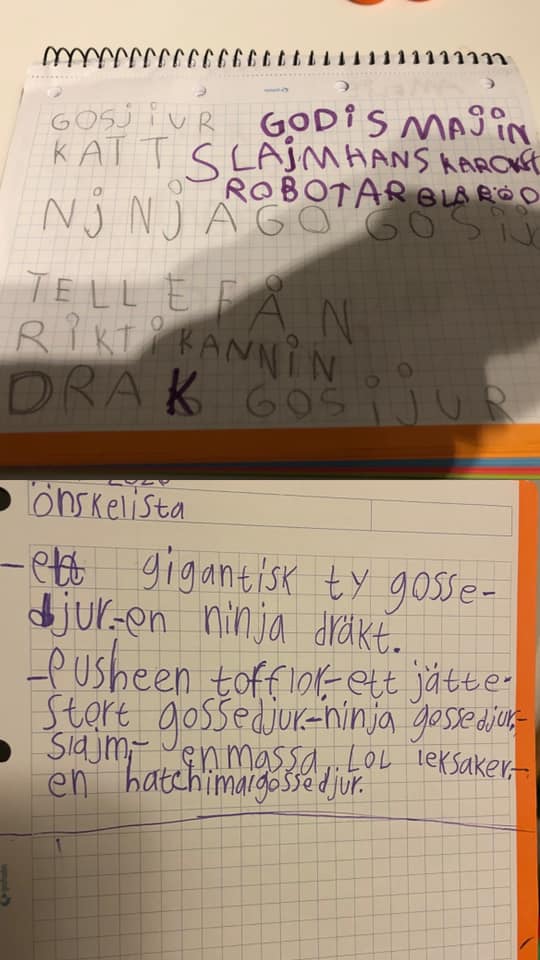 GOSJIUR GODIS MAJIN
KATT SLAJMHANS
ROBOTAR BLA RÖD
NJNJAGO GOSIJ
TELLEFÅN
RIKTIKANNIN
DRAK GOSIJUR
önskelista
-ett gigantisk ty gosse-
djur.-en ninja dräkt.
-Pusheen tofflor,-ett jätte-
stort gossedjur.-ninja gossedjur,-
slajm,- en massa LOL leksaker,-
en hatchimalgossedjur.